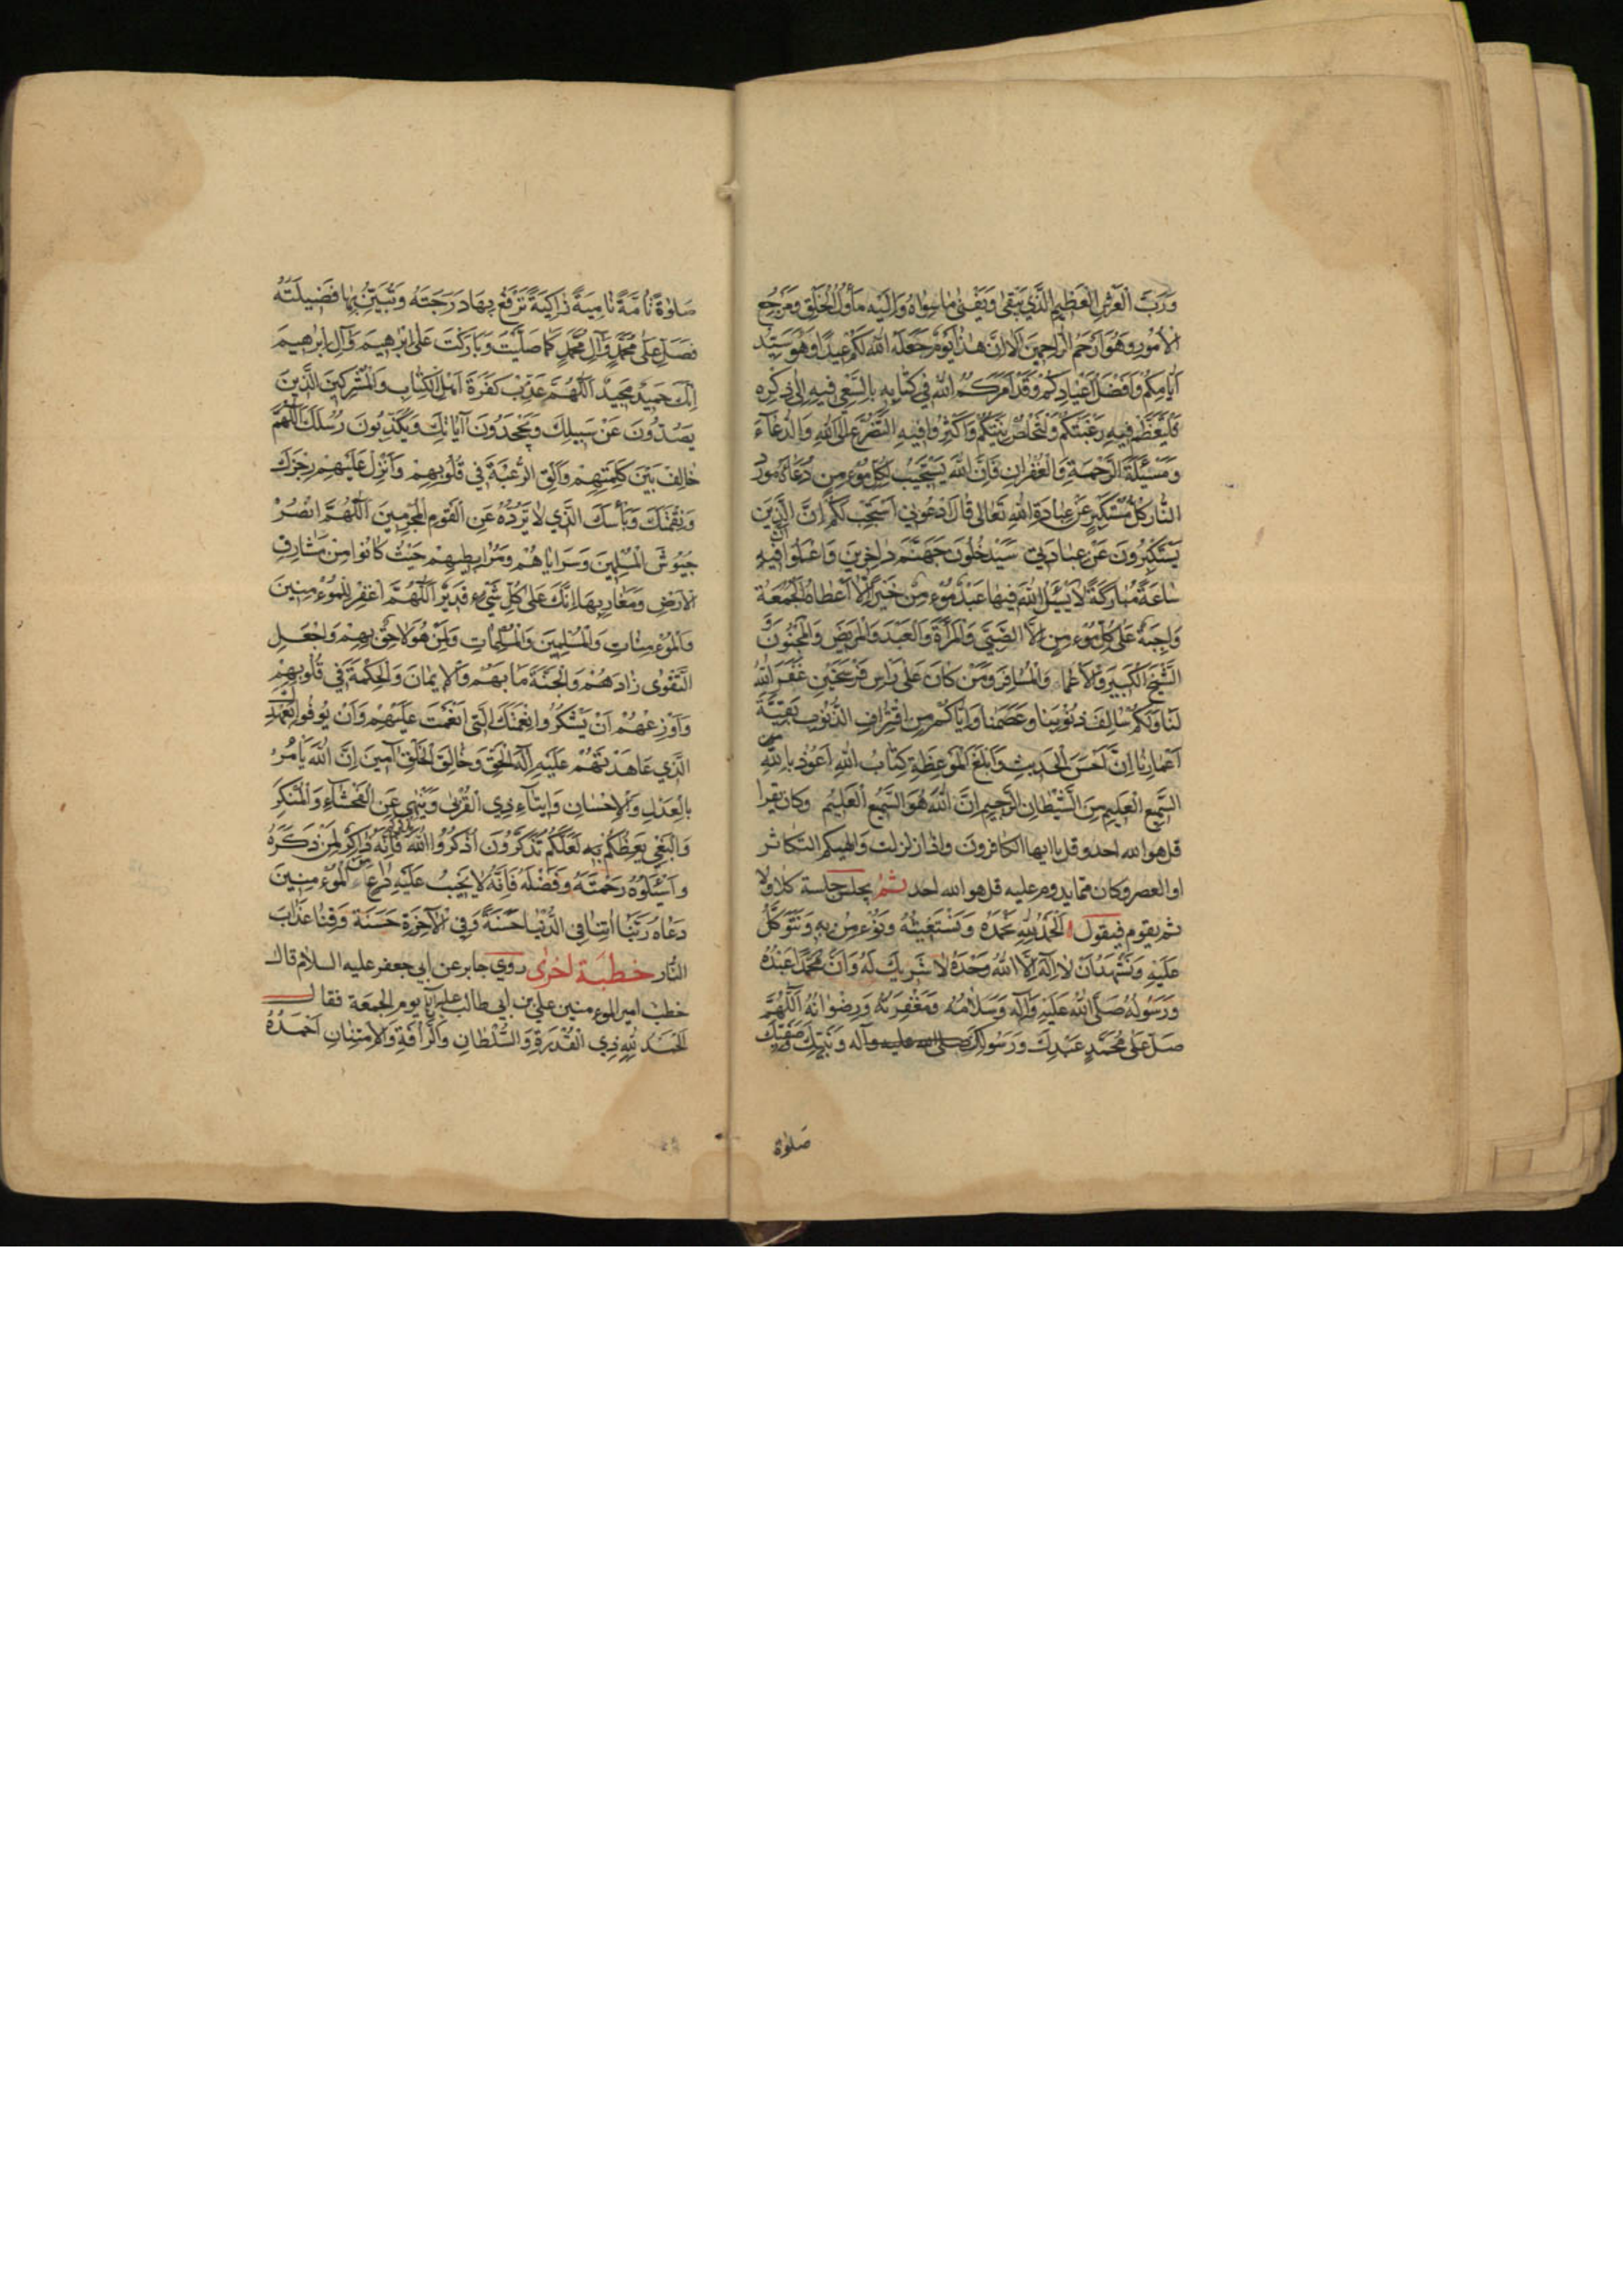 وَرَبِّ الْعَرْشِ الْعَظِيمِ الَّذِي يَبْقَى وَيَفْنَى مَا سِوَاهُ وَإِلَيْهِ مَأْوَلُ الْخَلْقِ وَمَرْجِعُ
الْأُمُورِ وَهُوَ أَرْحَمُ الرَّاحِمِينَ أَلَا إِنَّ هَذَا يَوْمٌ جَعَلَهُ اللَّهُ لَكُمْ عِيدًا وَهُوَ سَيِّدُ
أَيَّامِكُمْ وَأَفْضَلُ أَعْيَادِكُمْ وَقَدْ أَمَرَكُمُ اللَّهُ فِي كِتَابِهِ بِالسَّعْيِ فِيهِ إِلَى ذِكْرِهِ
فَلْيَعْظُمْ فِيهِ رَغْبَتُكُمْ وَلْتَخْلُصْ نِيَّتُكُمْ وَأَكْثِرُوا فِيهِ التَّضَرُّعَ إِلَى اللَّهِ وَالدُّعَاءَ
وَمَسْئَلَةَ الرَّحْمَةِ وَالْغُفْرَانِ فَإِنَّ اللَّهَ يَسْتَجِيبُ لِكُلِّ مُؤْمِنٍ دُعَاءَهُ وَيُورِدُ
النَّارَ كُلَّ مُسْتَكْبِرٍ عَنْ عِبَادَةِ اللَّهِ تَعَالَى قَالَ ادْعُونِي أَسْتَجِبْ لَكُمْ إِنَّ الَّذِينَ
يَسْتَكْبِرُونَ عَنْ عِبَادَتِي سَيَدْخُلُونَ جَهَنَّمَ دَاخِرِينَ وَاعْلَمُوا فِيهِ
سَاعَةٌ مُبَارَكَةٌ لَا يَسْئَلُ اللَّهَ فِيهَا عَبْدٌ مُؤْمِنٌ خَيْرًا إِلَّا أَعْطَاهُ الْجُمُعَةُ
وَاجِبَةٌ عَلَى كُلِّ مُؤْمِنٍ إِلَّا الصَّبِيَّ وَالْمَرْأَةَ وَالْعَبْدَ وَالْمَرِيضَ وَالْمَجْنُونَ وَ
الشَّيْخَ الْكَبِيرَ وَالْأَعْمَى وَالْمُسَافِرَ وَمَنْ كَانَ عَلَى رَأْسِ فَرْسَخَيْنِ غَفَرَ اللَّهُ
لَنَا وَلَكُمْ سَالِفَ ذُنُوبِنَا وَعَصَمَنَا وَإِيَّاكُمْ مِنِ اقْتِرَافِ الذُّنُوبِ بَقِيَّةَ
أَعْمَارِنَا إِنَّ أَحْسَنَ الْحَدِيثِ وَأَبْلَغَ الْمَوْعِظَةِ كِتَابُ اللَّهِ أَعُوذُ بِاللَّهِ
السَّمِيعِ الْعَلِيمِ مِنَ الشَّيْطَانِ الرَّجِيمِ إِنَّ اللَّهَ هُوَ السَّمِيعُ الْعَلِيمُ وكان يقرا
قل هو الله احد وقل يا ايها الكافرون واذا زلزلت والهيكم التكاثر
او العصر وكان مما يدوم عليه قل هو الله احد ثم يجلس جلسة كلا ولا
ثم يقوم فيقول الْحَمْدُ لِلَّهِ نَحْمَدُهُ وَنَسْتَعِينُهُ وَنُؤْمِنُ بِهِ وَنَتَوَكَّلُ
عَلَيْهِ وَنَشْهَدُ أَنْ لَا إِلَهَ إِلَّا اللَّهُ وَحْدَهُ لَا شَرِيكَ لَهُ وَأَنَّ مُحَمَّدًا عَبْدُهُ
وَرَسُولُهُ صَلَّى اللَّهُ عَلَيْهِ وَآلِهِ وَسَلَامُهُ وَمَغْفِرَتُهُ وَرِضْوَانُهُ اللَّهُمَّ
صَلِّ عَلَى مُحَمَّدٍ عَبْدِكَ وَرَسُولِكَ صلى الله عليه وآله وَنَبِيِّكَ وَصَفِيِّكَ
صَلٰوةً
صَلٰوةً تَامَّةً نَامِيَةً زَاكِيَةً تَرْفَعُ بِهَا دَرَجَتَهُ وَتُبَيِّنُ بِهَا فَضِيلَتَهُ
فَصَلِّ عَلَى مُحَمَّدٍ وَآلِ مُحَمَّدٍ كَمَا صَلَّيْتَ وَبَارَكْتَ عَلَى إِبْرَهِيمَ وَآلِ إِبْرَهِيمَ
إِنَّكَ حَمِيدٌ مَجِيدٌ اللَّهُمَّ عَذِّبْ كَفَرَةَ أَهْلِ الْكِتَابِ وَالْمُشْرِكِينَ الَّذِينَ
يَصُدُّونَ عَنْ سَبِيلِكَ وَيَجْحَدُونَ آيَاتِكَ وَيُكَذِّبُونَ رُسُلَكَ اللَّهُمَّ
خَالِفْ بَيْنَ كَلِمَتِهِمْ وَأَلْقِ الرُّعْبَ فِي قُلُوبِهِمْ وَأَنْزِلْ عَلَيْهِمْ رِجْزَكَ
وَنِقْمَتَكَ وَبَأْسَكَ الَّذِي لَا تَرُدُّهُ عَنِ الْقَوْمِ الْمُجْرِمِينَ اللَّهُمَّ انْصُرْ
جُيُوشَ الْمُسْلِمِينَ وَسَرَايَاهُمْ وَمُرَابِطِيهِمْ حَيْثُ كَانُوا مِنْ مَشَارِقِ
الْأَرْضِ وَمَغَارِبِهَا إِنَّكَ عَلَى كُلِّ شَيْءٍ قَدِيرٌ اللَّهُمَّ اغْفِرْ لِلْمُؤْمِنِينَ
وَالْمُؤْمِنَاتِ وَالْمُسْلِمِينَ وَالْمُسْلِمَاتِ وَلِمَنْ هُوَ لَاحِقٌ بِهِمْ وَاجْعَلِ
التَّقْوَى زَادَهُمْ وَالْجَنَّةَ مَآبَهُمْ وَالْإِيمَانَ وَالْحِكْمَةَ فِي قُلُوبِهِمْ
وَأَوْزِعْهُمْ أَنْ يَشْكُرُوا نِعْمَتَكَ الَّتِي أَنْعَمْتَ عَلَيْهِمْ وَأَنْ يُوفُوا بِعَهْدِكَ
الَّذِي عَاهَدْتَهُمْ عَلَيْهِ إِلَهَ الْحَقِّ وَخَالِقَ الْخَلْقِ آمِينَ إِنَّ اللَّهَ يَأْمُرُ
بِالْعَدْلِ وَالْإِحْسَانِ وَإِيتَاءِ ذِي الْقُرْبَى وَيَنْهَى عَنِ الْفَحْشَاءِ وَالْمُنْكَرِ
وَالْبَغْيِ يَعِظُكُمْ بِهِ لَعَلَّكُمْ تَذَكَّرُونَ اذْكُرُوا اللَّهَ فَإِنَّهُ ذَاكِرٌ لِمَنْ ذَكَرَهُ
وَاسْئَلُوهُ رَحْمَتَهُ وَفَضْلَهُ فَإِنَّهُ لَا يَخِيبُ عَلَيْهِ دَاعٍ مِنَ الْمُؤْمِنِينَ
دَعَاهُ رَبَّنَا آتِنَا فِي الدُّنْيَا حَسَنَةً وَفِي الْآخِرَةِ حَسَنَةً وَقِنَا عَذَابَ
النَّارِ خطبة اخرى روي جابر عن ابي جعفر عليه السلام قال
خطب امير المؤمنين علي بن ابي طالب يوم الجمعة فقال
الْحَمْدُ لِلَّهِ ذِي الْقُدْرَةِ وَالسُّلْطَانِ وَالرَّأْفَةِ وَالِامْتِنَانِ أَحْمَدُهُ